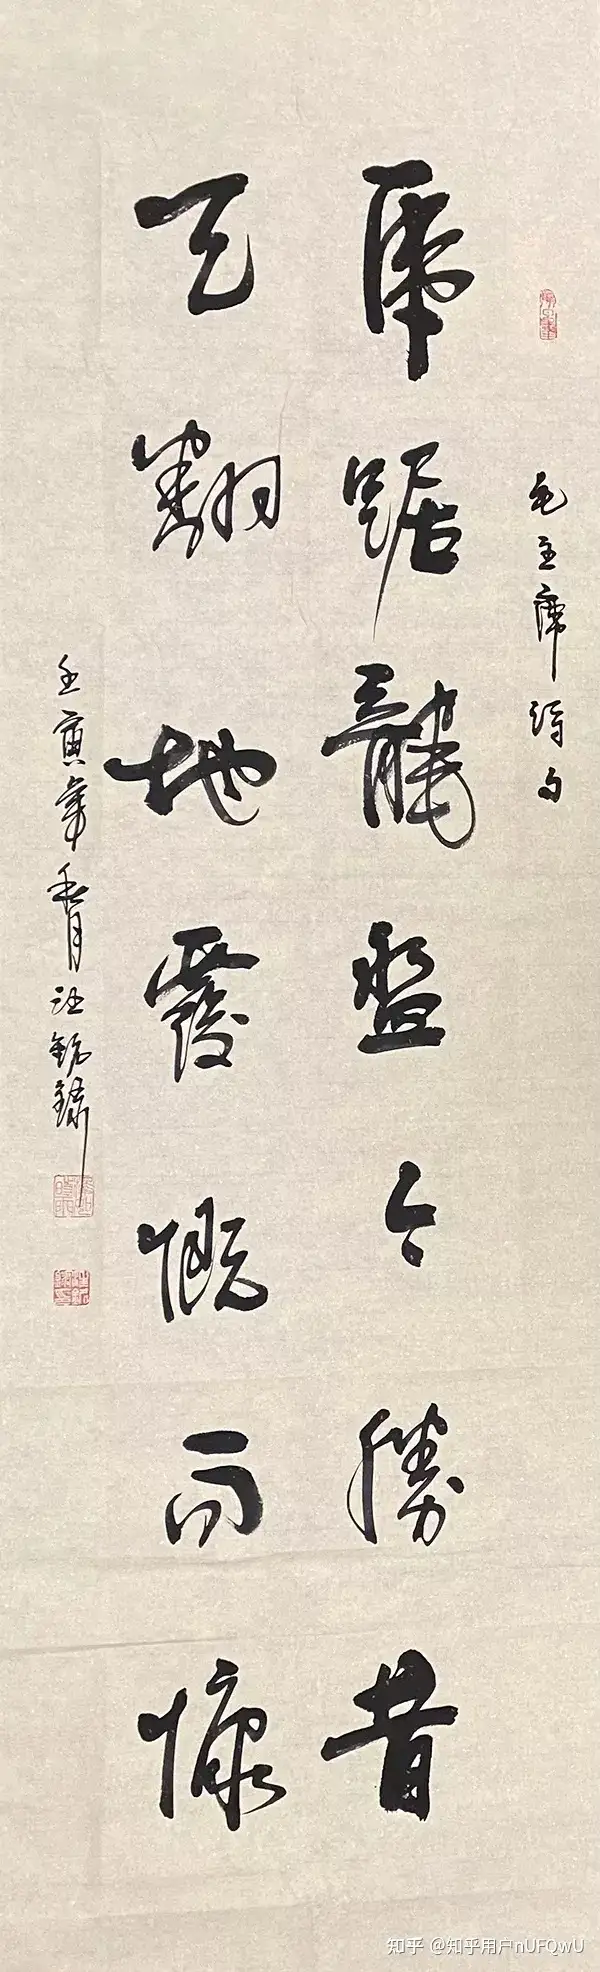 毛主席诗句
虎踞龍盤今勝昔
天翻地覆慨而慷
壬寅年春月汪
知乎 @知乎用户nUFQwU